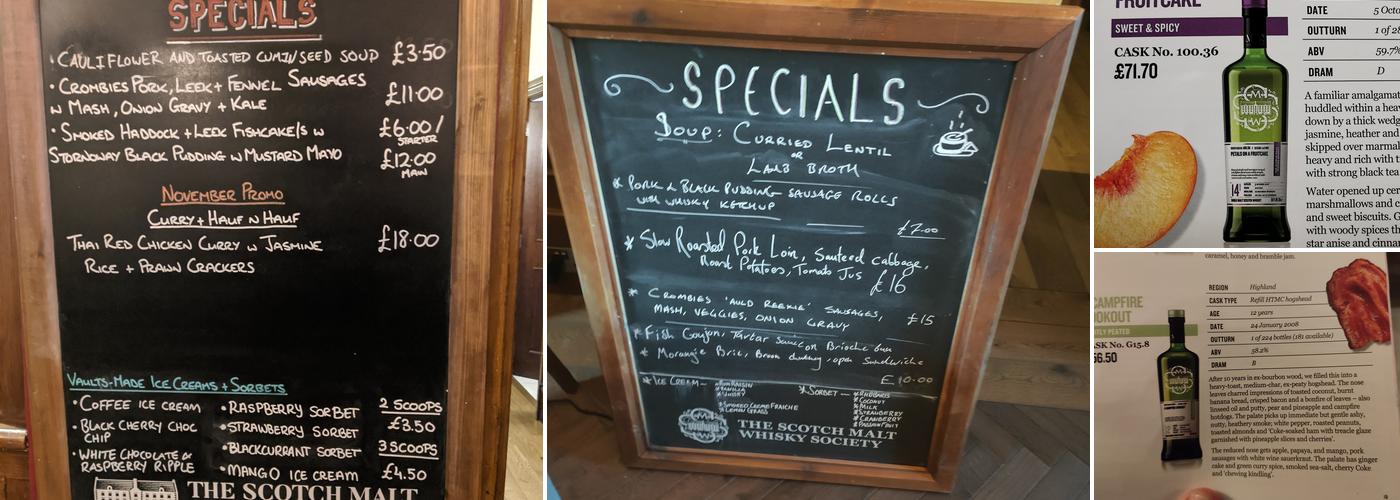 SPECIALS
• CAULIFLOWER AND TOASTED CUMIN SEED SOUP £3·50
• CROMBIES PORK, LEEK + FENNEL SAUSAGES
W MASH, ONION GRAVY + KALE £11·00
• SMOKED HADDOCK + LEEK FISHCAKE/S W £6·00/
STARTER
STORNOWAY BLACK PUDDING W MUSTARD MAYO £12·00
MAIN
NOVEMBER PROMO
CURRY + HALF N HALF
THAI RED CHICKEN CURRY W JASMINE £18·00
RICE + PRAWN CRACKERS
VAULTS-MADE ICE CREAMS + SORBETS
• COFFEE ICE CREAM
• BLACK CHERRY CHOC
CHIP
• WHITE CHOCOLATE &
RASPBERRY RIPPLE
• RASPBERRY SORBET
• STRAWBERRY SORBET
• BLACKCURRANT SORBET
• MANGO ICE CREAM
2 SCOOPS
£3·50
3 SCOOPS
£4·50
THE SCOTCH MALT
SPECIALS
SOUP: CURRIED LENTIL
OR
LAMB BROTH
* PORK & BLACK PUDDING SAUSAGE ROLLS
WITH WHISKY KETCHUP
£7.00
* Slow Roasted Pork Loin, Sauteed Cabbage,
Roast Potatoes, Tomato Jus £16
* CROMBIES 'AULD REEKIE' SAUSAGES,
MASH, VEGGIES, ONION GRAVY £15
* Fish Goujon, Tartar Sauce on Brioche bun
* Morangie Brie, open Sandwiche
£10.00
* ICE CREAM –
* RUM RAISIN
* VANILLA
* WHISKY
* SMOKED CREME FRAICHE
* LEMON GRASS
* SORBET –
* RHUBARB
* COCONUT
* MILK
* STRAWBERRY
* CRANBERRY
* PASSIONFRUIT
THE SCOTCH MALT
WHISKY SOCIETY
FRUITCAKE
SWEET & SPICY
CASK No. 100.36
£71.70
PETALS ON A FRUITCAKE
14
DATE 5 Octo
OUTTURN 1 of 2
ABV 59.7%
DRAM D
A familiar amalgamat
huddled within a heav
down by a thick wedg
jasmine, heather and
skipped over marmal
heavy and rich with t
with strong black tea
Water opened up cer
marshmallows and c
and sweet biscuits. G
with woody spices th
star anise and cinna
caramel, honey and bramble jam.
CAMPFIRE
OOKOUT
TLY PEATED
ASK No. G15.8
56.50
REGION Highland
CASK TYPE Refill HTMC hogshead
AGE 12 years
DATE 24 January 2008
OUTTURN 1 of 224 bottles (181 available)
ABV 58.2%
DRAM B
After 10 years in ex-bourbon wood, we filled this into a
heavy-toast, medium-char, ex-peaty hogshead. The nose
leaves charred impressions of toasted coconut, burnt
banana bread, crisped bacon and a bonfire of leaves – also
linseed oil and putty, pear and pineapple and campfire
hotdogs. The palate picks up immediate but gentle ashy,
nutty, heathery smoke; white pepper, roasted peanuts,
toasted almonds and 'Coke-soaked ham with treacle glaze
garnished with pineapple slices and cherries'.
The reduced nose gets apple, papaya, and mango, pork
sausages with white wine sauerkraut. The palate has ginger
cake and green curry spice, smoked sea-salt, cherry Coke
and 'chewing kindling'.